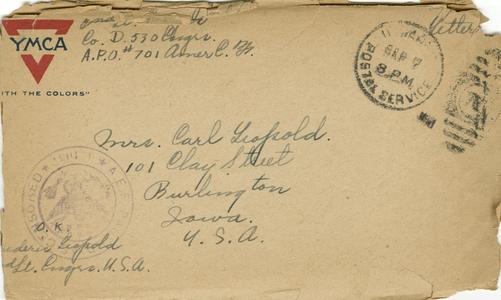 YMCA
WITH THE COLORS"
Co. D. 530 Engrs.
A.P.O.# 701 Amer. E.F.
Letters
U.S. ARMY
SEP 7
8 P.M.
POSTAL SERVICE
Mrs. Carl Leopold.
101 Clay Street
Burlington
Iowa.
U.S.A.
CENSORED
A.E.F.
O.K.
Frederic Leopold
Lt. Engrs. U.S.A.